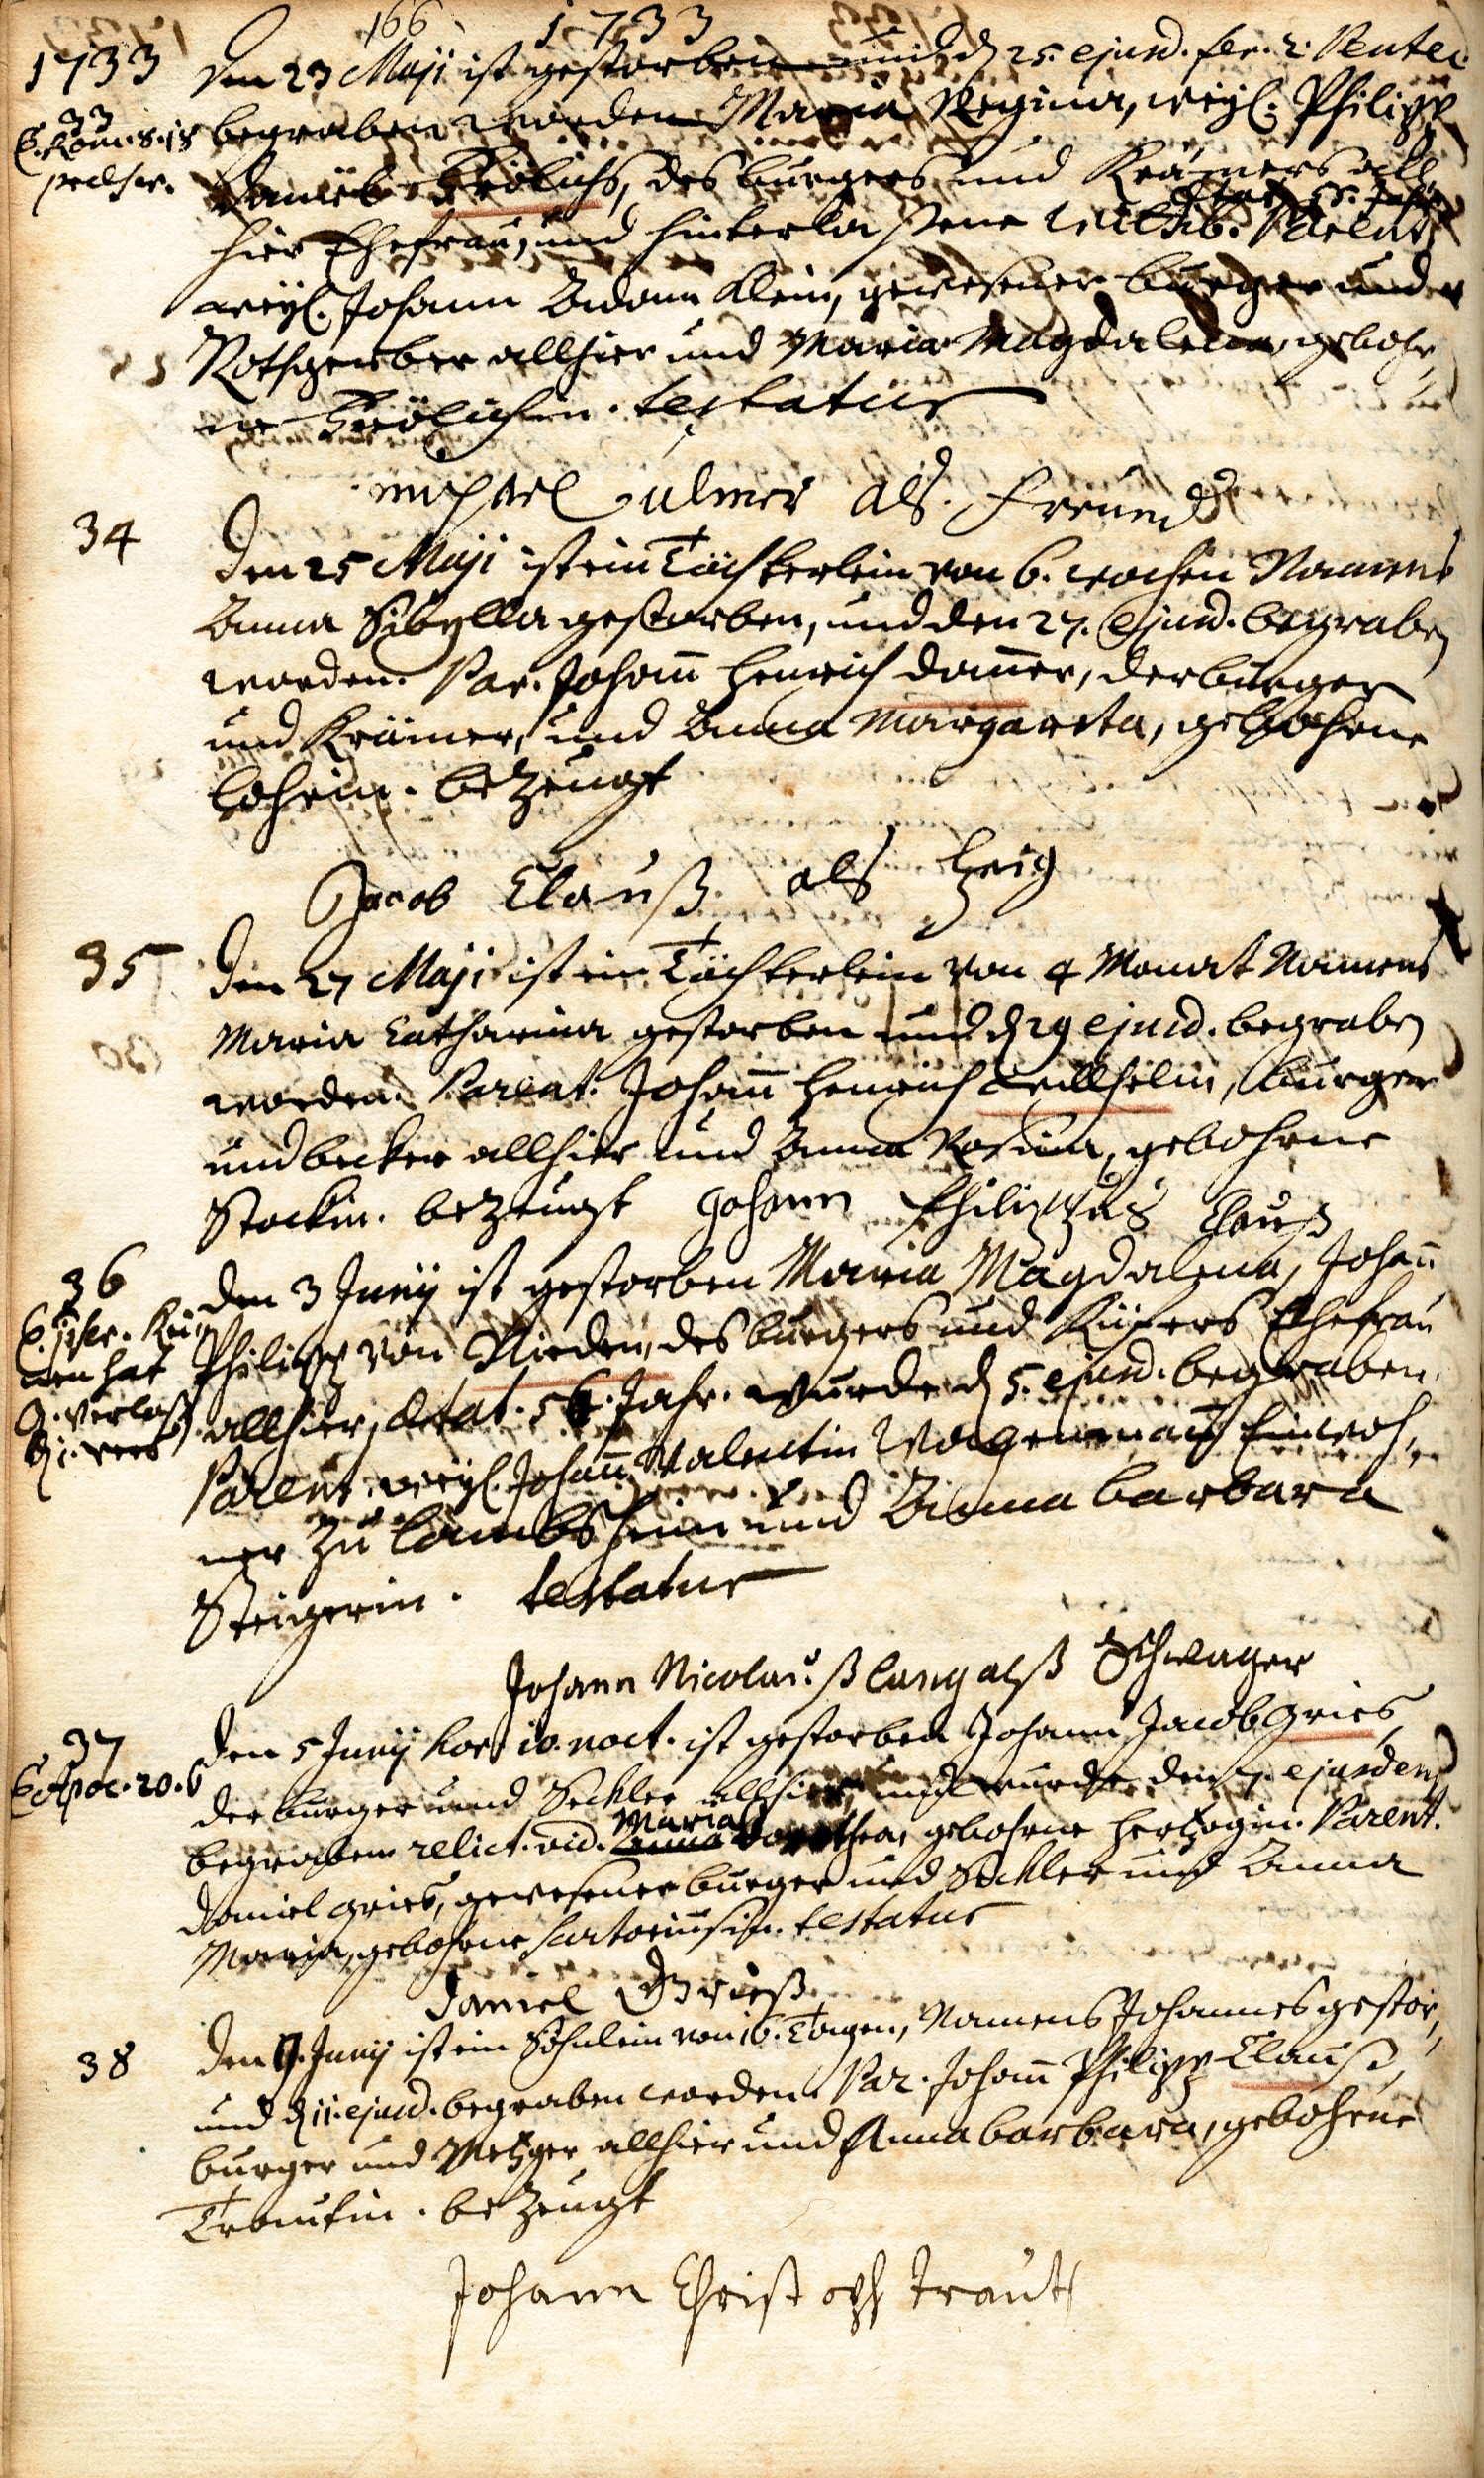 166 1733
1733 Den 23 Maji ist gestorben und d 25. ejusd. fer. 2. Pentec.
33 begraben worden Maria Regina, weyl. Philipp
E. Rom. 8. 18
Daniel Frölichs, des burgers und Krämers all
hier Ehefrau, und hinterlaßene Wittib. Parent.
ætat. 55. Jahr
weyl. Johann Adam Klein, gewesener burger und
Rothgerber allhier und Maria Magdalena, gebohr
ne Frölichin. testatur
michael ulmer als. freund
34 Den 25 Maji ist ein Töchterlein von 6. wochen Namens
Anna Sibylla gestorben, und den 27. ejusd. begraben
worden. Par. Johann Henrich Damer, der burger
und Krämer, und Anna Margareta, gebohrne
bezeugt
Jacob Clauß als Zeig
35 Den 27 Maji ist ein Töchterlein von 4 Monat Namens
Maria Catharina gestorben und d 29 ejusd. begraben
worden. Parent. Johann Henrich Willhelm, burger
und becker allhier und Anna Rosina, gebohrne
Stockin. bezeugt Johann Philippus Clauß
36 Den 3 Junij ist gestorben Maria Magdalena, Johann
Philipp von Nieden, des burgers und Küfers Ehefrau
allhier, ætat. 56. Jahr. wurde d 5. ejusd. begraben.
Parent. weyl. Johann Valentin Wagenmann Einwoh,
ner zu Lambsheim und Anna Barbara
Steigerin. testatur
Johann Nicolauß lang alß Schwager
37 Den 5 Junij hor 10. noct. ist gestorben Johann Jacob Gries,
E. Apoc. 20. 6
der burger und Seckler allhier, und wurde den 7. ejusdem
begraben relict. vid. Anna Dorothea, gebohrne Hertzogin. Parent.
Maria
Daniel Gries, gewesener burger und Seckler und Anna
Maria, gebohrne Sartoriusin. testatur
Daniel Grieß
38 Den 9. Junij ist ein Söhnlein von 16. Tagen, Namens Johannes gestor,
und d 11. ejusd. begraben worden. Par. Johann Philipp Clauß,
burger und Metzger allhier und Anna Barbara, gebohrne
Trautin. bezeugt
Johann Christoph Traut